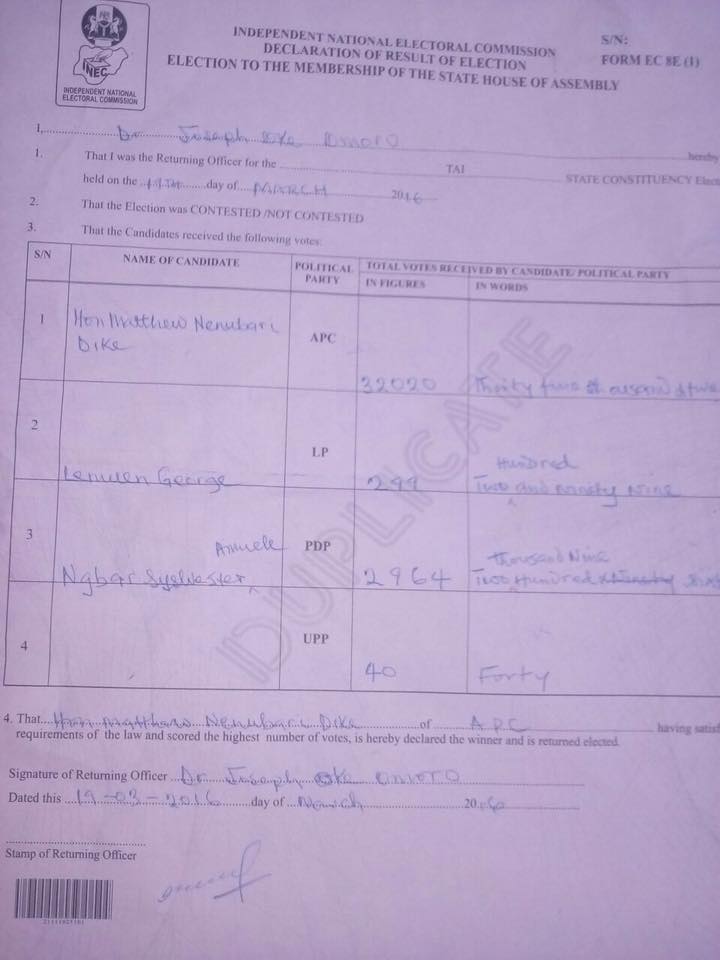 INDEPENDENT NATIONAL ELECTORAL COMMISSION
DECLARATION OF RESULT OF ELECTION
ELECTION TO THE MEMBERSHIP OF THE STATE HOUSE OF ASSEMBLY
S/N:
FORM EC 8E (1)
INEC
INDEPENDENT NATIONAL
ELECTORAL COMMISSION
I, Dr Joseph Oke Omoro hereby
1. That I was the Returning Officer for the TAI STATE CONSTITUENCY Elect
held on the day of MARCH 2016
2. That the Election was CONTESTED /NOT CONTESTED
3. That the Candidates received the following votes:
S/N NAME OF CANDIDATE POLITICAL PARTY TOTAL VOTES RECEIVED BY CANDIDATE/ POLITICAL PARTY
IN FIGURES IN WORDS
1 Hon Matthew Nenubari Dike APC 32020 two thousand
2 George LP 299 Two Hundred and ninety nine
3 Ngbar Sylvester PDP 2964 Two thousand Nine Hundred
4 UPP 40 Forty
DUPLICATE
4. That Hon Matthew Nenubari Dike of APC having satisf
requirements of the law and scored the highest number of votes, is hereby declared the winner and is returned elected.
Signature of Returning Officer Dr Joseph Oke Omoro
Dated this 19-03-2016 day of March 2016
Stamp of Returning Officer